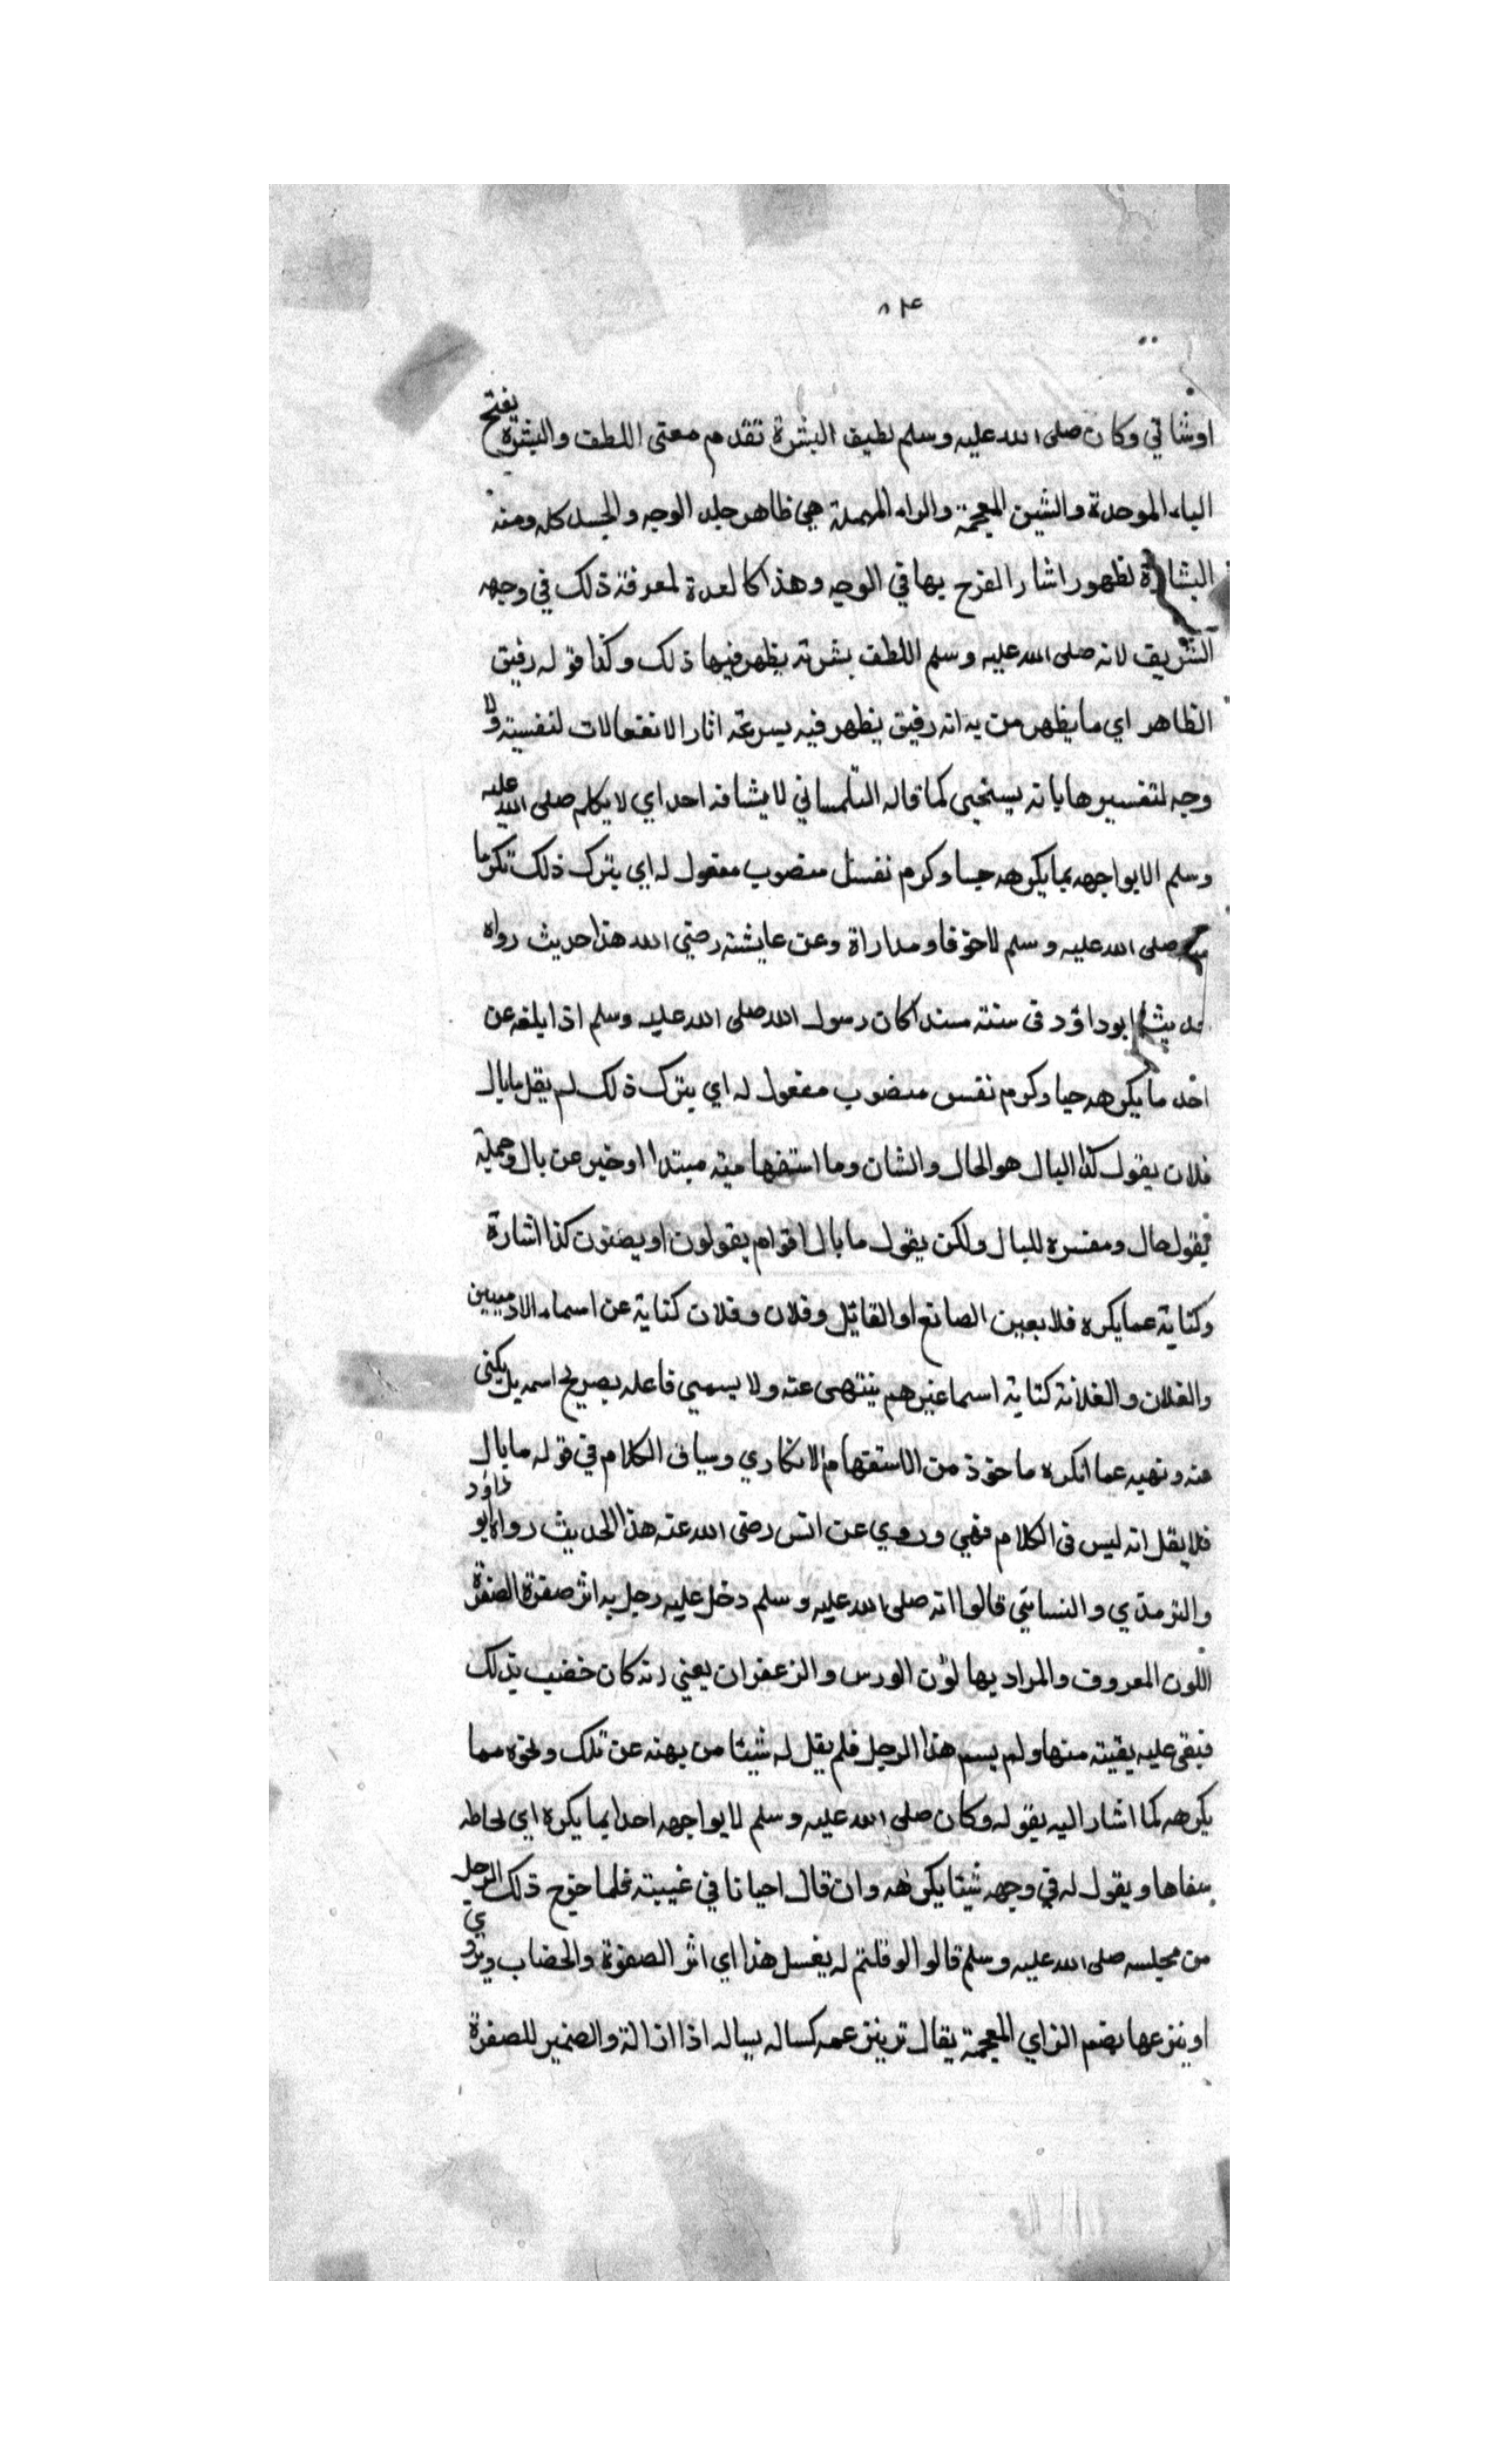 ٨٤
اوشاني وكان صلى الله عليه وسلم لطيف البشرة تقدم معنى اللطف والبشرة يفتح
الباء الموحدة والشين المعجمة والراء المهملة هي ظاهر جلد الوجه والجسد كله ومنه
البشارة لظهور اشار الفرح بها في الوجه وهذا كالعدة لمعرفة ذلك في وجهه
الشريف لانه صلى الله عليه وسلم اللطف بشرته يظهر فيها ذلك وكذا قوله رقيق
الظاهر اي ما يظهر من يدانه رقيق يظهر فيه يسرعة اثار الانفعالات لنفسيته ولا
وجه لتفسيرها بانه يستحيى كما قاله التلمساني لا يشافه احد اي لا يكلم صلى الله عليه
وسلم الا يواجهه بما يكرهه حيا وكرم نفسل منصوب مفعول له اي يترك ذلك تكرما
منه صلى الله عليه وسلم لا خوفا ومداراة وعن عايشة رضي الله هذا حديث رواه
ابو داود في سننه مسندا كان رسول الله صلى الله عليه وسلم اذا يلغه عن
احد ما يكرهه حيا وكرم نفس منصوب مفعول له اي يترك ذلك لم يقل ما بال
فلان يقول كذا البال هو الحال والشان وما استفهامية مبتدا اوخبر عن بال وجملة
يقول حال ومفسره للبال ولكن يقول ما بال اقوام يقولون او يصنون كذا اشارة
وكناية عما يكره فلا بعين الصانع او القايل وفلان وفلان كناية عن اسماء الادميين
والفلان والفلانة كناية اسما غيرهم ينتهى عنه ولا يسمي فاعله بصريح اسمه بل يكنى
عنه ونهيه عما انكره ماخوذ من الاستفهام الانكاري وسياق الكلام في قوله ما بال
فلا يقل انه ليس في الكلام نهي وروي عن انس رضى الله عنه هذا الحديث رواه ابو داود
والترمذي والنسايي قالوا انه صلى الله عليه وسلم دخل عليه رجل به اثر صفرة الصفرة
اللون المعروف والمراد بها لون الورس والزعفران يعني انه كان خضب بذلك
فبقى عليه بقيته منها ولم يسم هذا الرجل فلم يقل له شيئا من يهنه عن تلك ونحوه مما
يكرهه كما اشار اليه بقوله وكان صلى الله عليه وسلم لا يواجهه احدا بما يكره اي لحاطه
سفاها ويقول له في وجهه شيئا يكرهه وان قال احيانا في غيبته فلما خرج ذلك الرجل
من مجلسه صلى الله عليه وسلم قالوا لو قلتم له يغسل هذا اي اثر الصفرة والخضاب ويروي
او ينزعها بضم الزاي المعجمة يقال تر ينزعمه كساله يساله اذا ازالة والضمير للصفرة